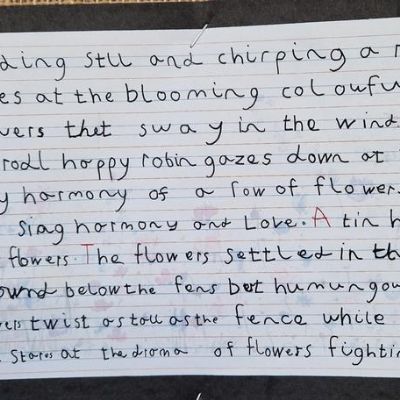 ding stll and chirping a
es at the blooming colouful
vers thet sway in the wind
rodl happy robin gazes down at
y harmony of a row of flowers
siag harmony and Love. A tin h
flowers. The flowers settled in the
ound below the fens but humungou
ers twist as tall as the fence while
Stares at the drama of flowers fightin